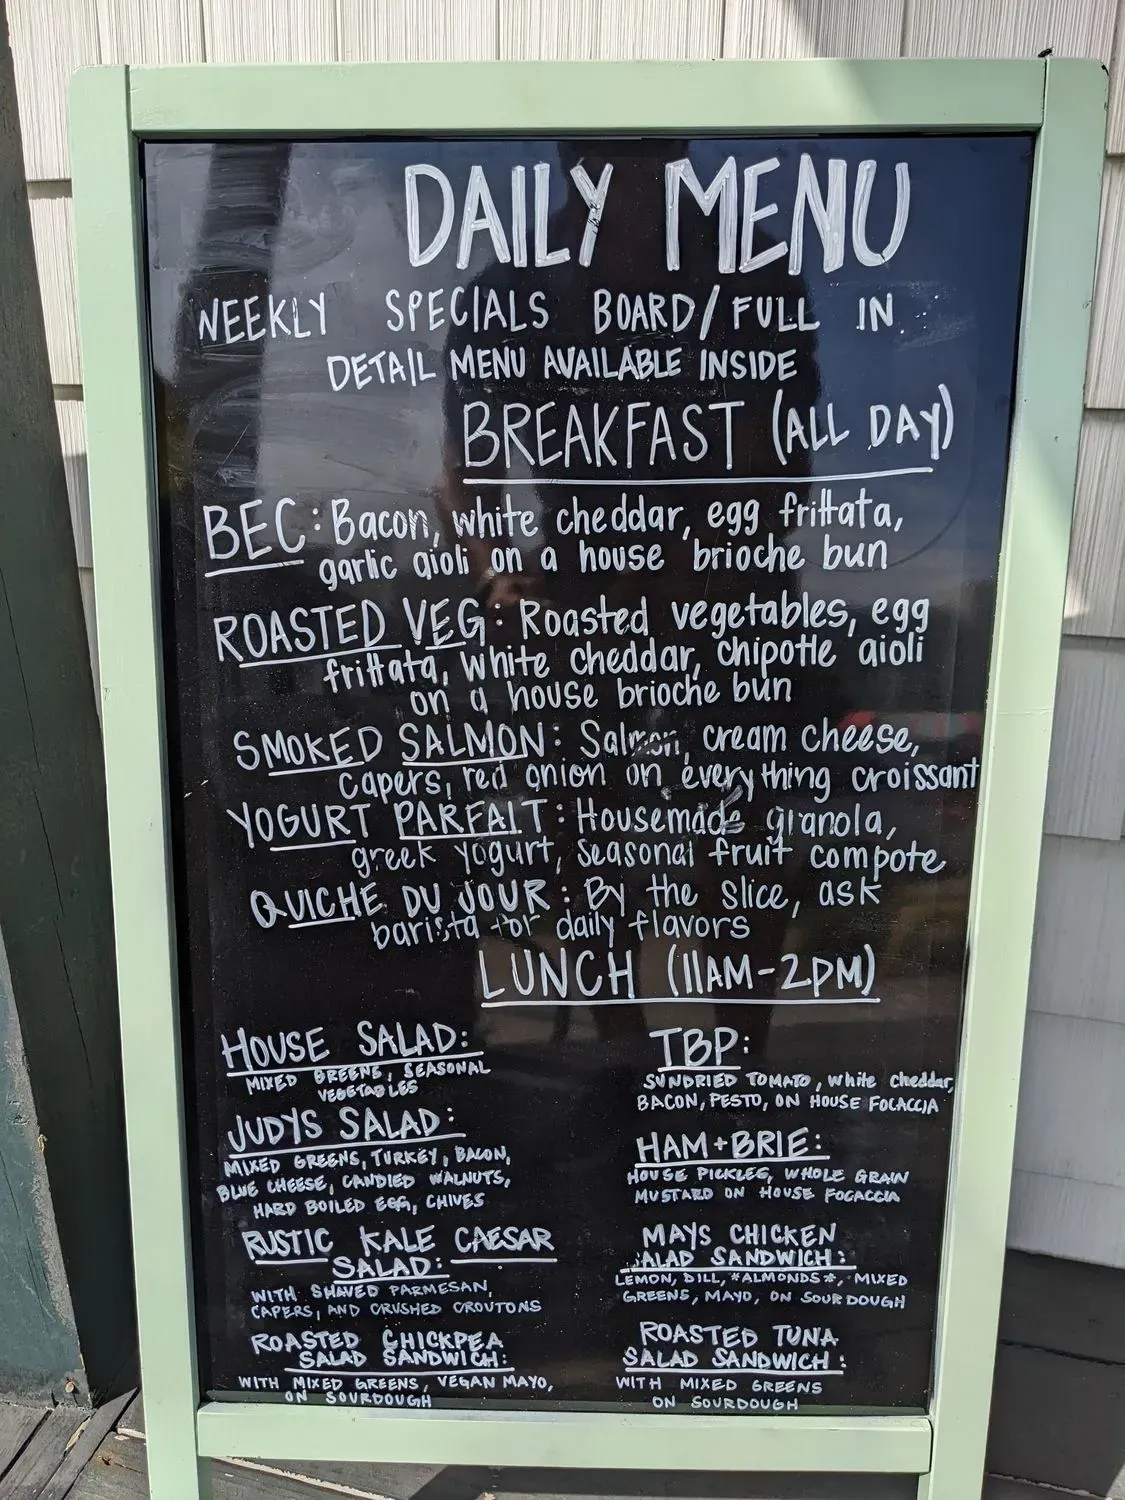 DAILY MENU
WEEKLY SPECIALS BOARD/FULL IN
DETAIL MENU AVAILABLE INSIDE
BREAKFAST (ALL DAY)
BEC: Bacon, white cheddar, egg frittata,
garlic aioli on a house brioche bun
ROASTED VEG: Roasted vegetables, egg
frittata, white cheddar, chipotle aioli
on a house brioche bun
SMOKED SALMON: Salmon, cream cheese,
capers, red onion on everything croissant
YOGURT PARFAIT: Housemade granola,
greek yogurt, seasonal fruit compote
QUICHE DU JOUR: By the slice, ask
barista for daily flavors
LUNCH (11AM-2PM)
HOUSE SALAD:
MIXED GREENS, SEASONAL
VEGETABLES
JUDYS SALAD:
MIXED GREENS, TURKEY, BACON,
BLUE CHEESE, CANDIED WALNUTS,
HARD BOILED EGG, CHIVES
RUSTIC KALE CAESAR
SALAD:
WITH SHAVED PARMESAN,
CAPERS, AND CRUSHED CROUTONS
ROASTED CHICKPEA
SALAD SANDWICH:
WITH MIXED GREENS, VEGAN MAYO,
ON SOURDOUGH
TBP:
SUNDRIED TOMATO, white cheddar,
BACON, PESTO, ON HOUSE FOCACCIA
HAM+BRIE:
HOUSE PICKLES, WHOLE GRAIN
MUSTARD ON HOUSE FOCACCIA
MAYS CHICKEN
SALAD SANDWICH:
LEMON, DILL, *ALMONDS*, MIXED
GREENS, MAYO, ON SOURDOUGH
ROASTED TUNA
SALAD SANDWICH:
WITH MIXED GREENS
ON SOURDOUGH